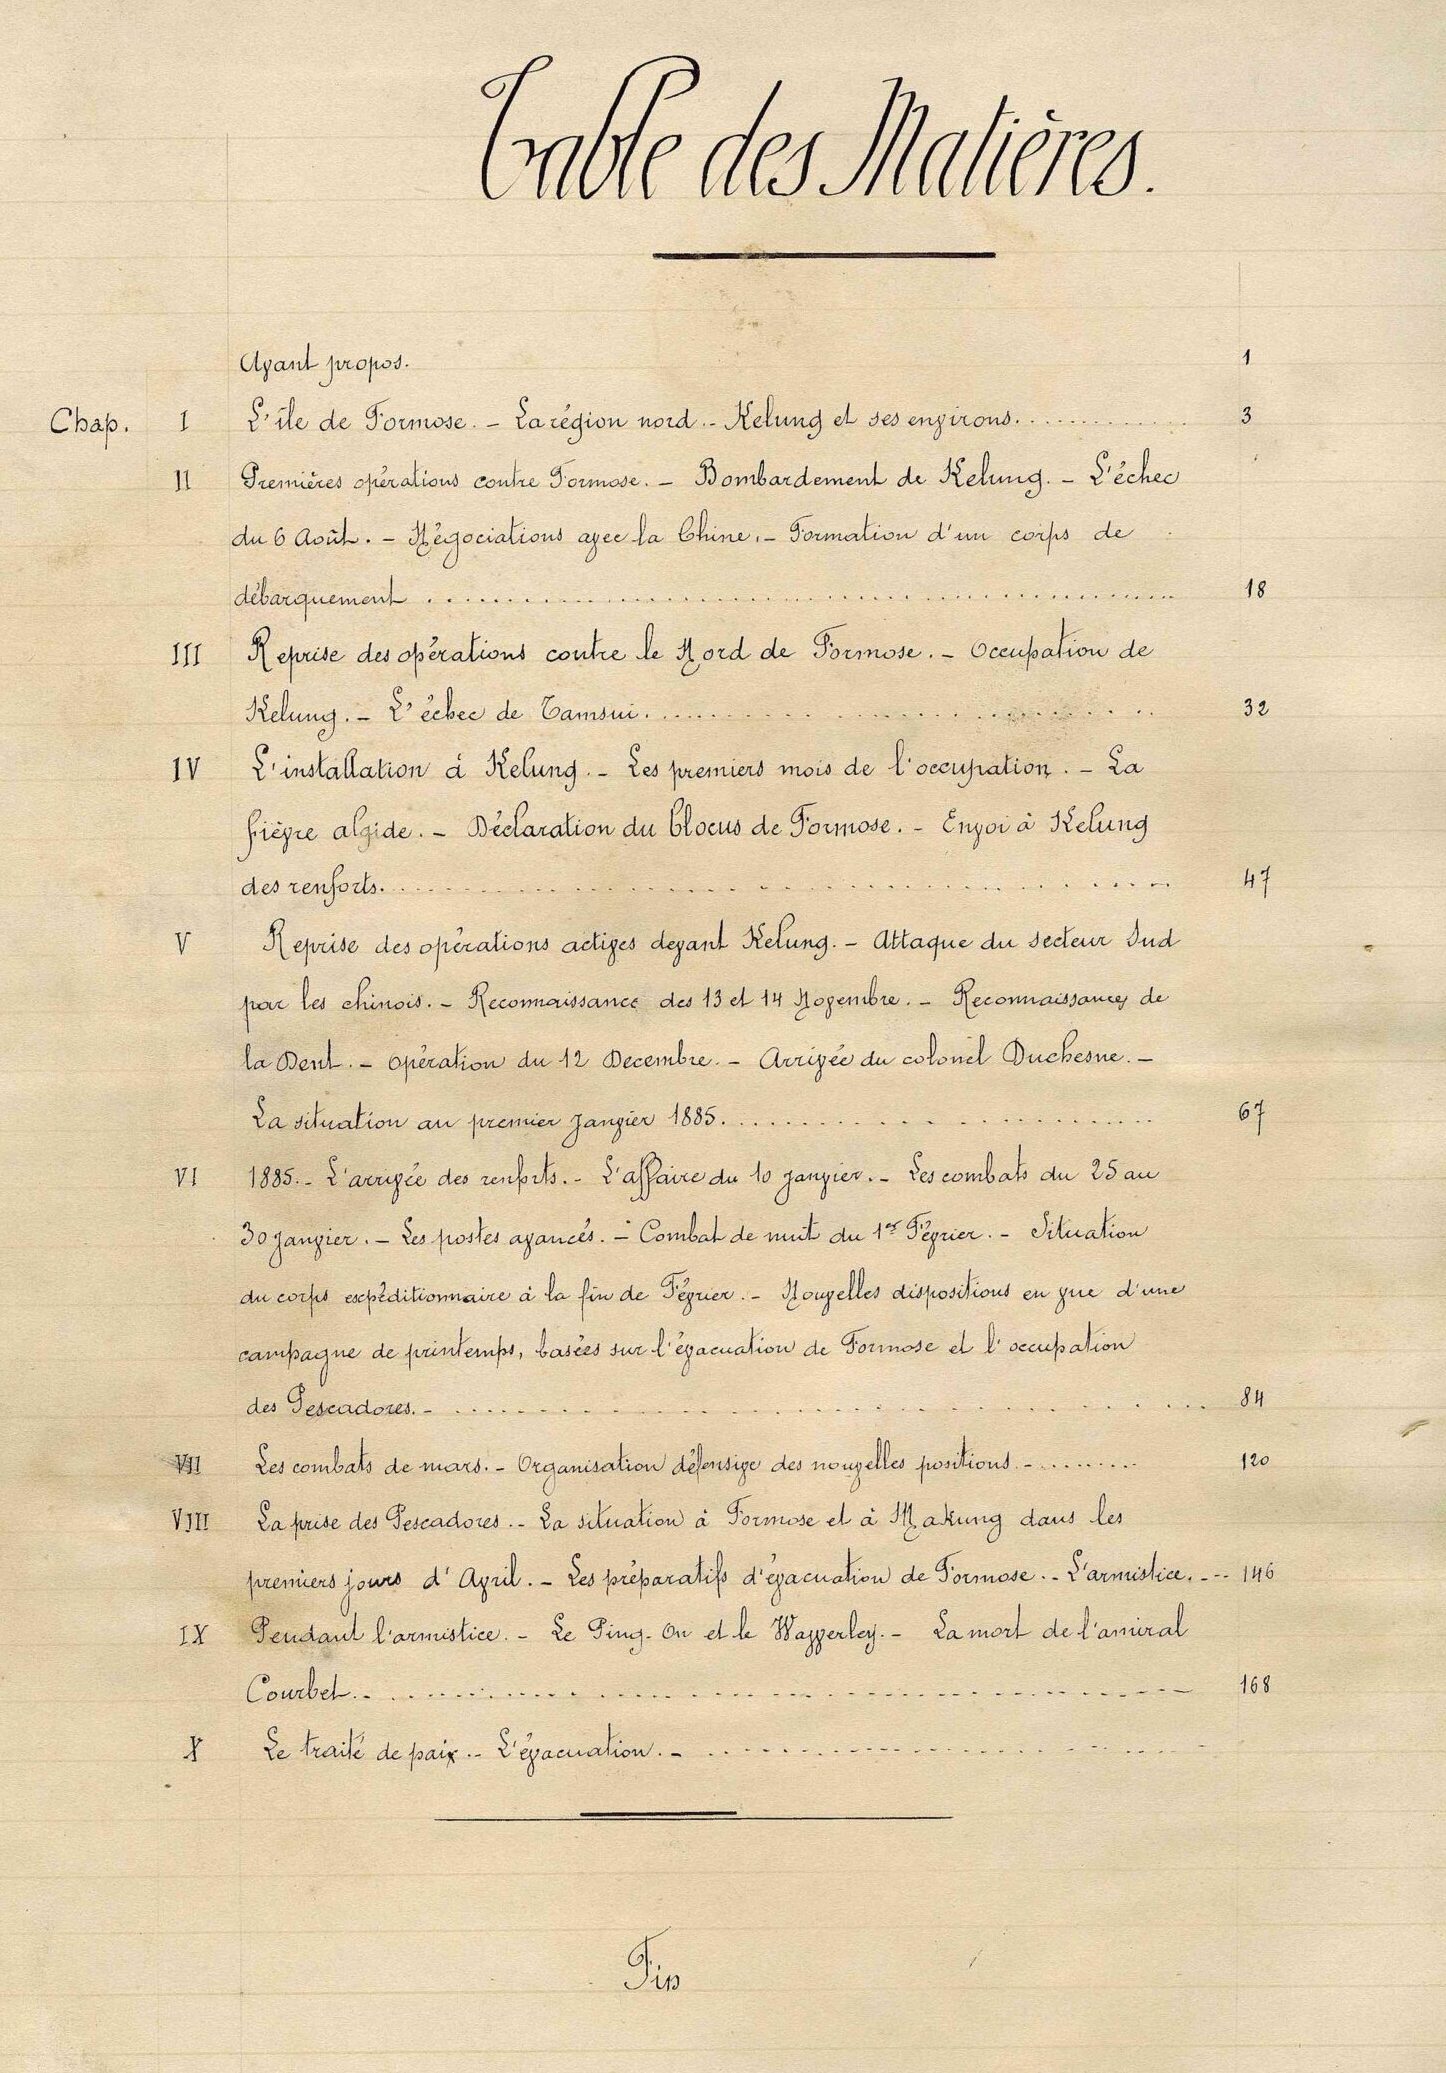 Table des Matières.
Avant propos. 1
Chap. I L'île de Formose. - La région nord. - Kelung et ses environs. ............ 3
II Premières opérations contre Formose. - Bombardement de Kelung. - L'échec
du 6 Août. - Négociations avec la Chine. - Formation d'un corps de
débarquement ............ 18
III Reprise des opérations contre le Nord de Formose. - Occupation de
Kelung. - L'échec de Tamsui. ............ 32
IV L'installation à Kelung. - Les premiers mois de l'occupation. - La
fièvre algide. - Déclaration du blocus de Formose. - Envoi à Kelung
des renforts. ............ 47
V Reprise des opérations actives devant Kelung. - Attaque du secteur Sud
par les chinois. - Reconnaissance des 13 et 14 Novembre. - Reconnaissances de
la Dent. - Opération du 12 Decembre. - Arrivée du colonel Duchesne. -
La situation au premier Janvier 1885. ............ 67
VI 1885. - L'arrivée des renforts. - L'affaire du 10 Janvier. - Les combats du 25 au
30 Janvier. - Les postes avancés. - Combat de nuit du 1er Février. - Situation
du corps expéditionnaire à la fin de Février. - Nouvelles dispositions en vue d'une
campagne de printemps, basées sur l'évacuation de Formose et l'occupation
des Pescadores. - ............ 84
VII Les combats de mars. - Organisation défensive des nouvelles positions. - ......... 120
VIII La prise des Pescadores. - La situation à Formose et à Makung dans les
premiers jours d'Avril. - Les préparatifs d'évacuation de Formose. - L'armistice. - -- 146
IX Pendant l'armistice. - Le Ping-On et le Wawerley. - La mort de l'amiral
Courbet. - ............ 168
X Le traité de paix. - L'évacuation. - ............
Fin